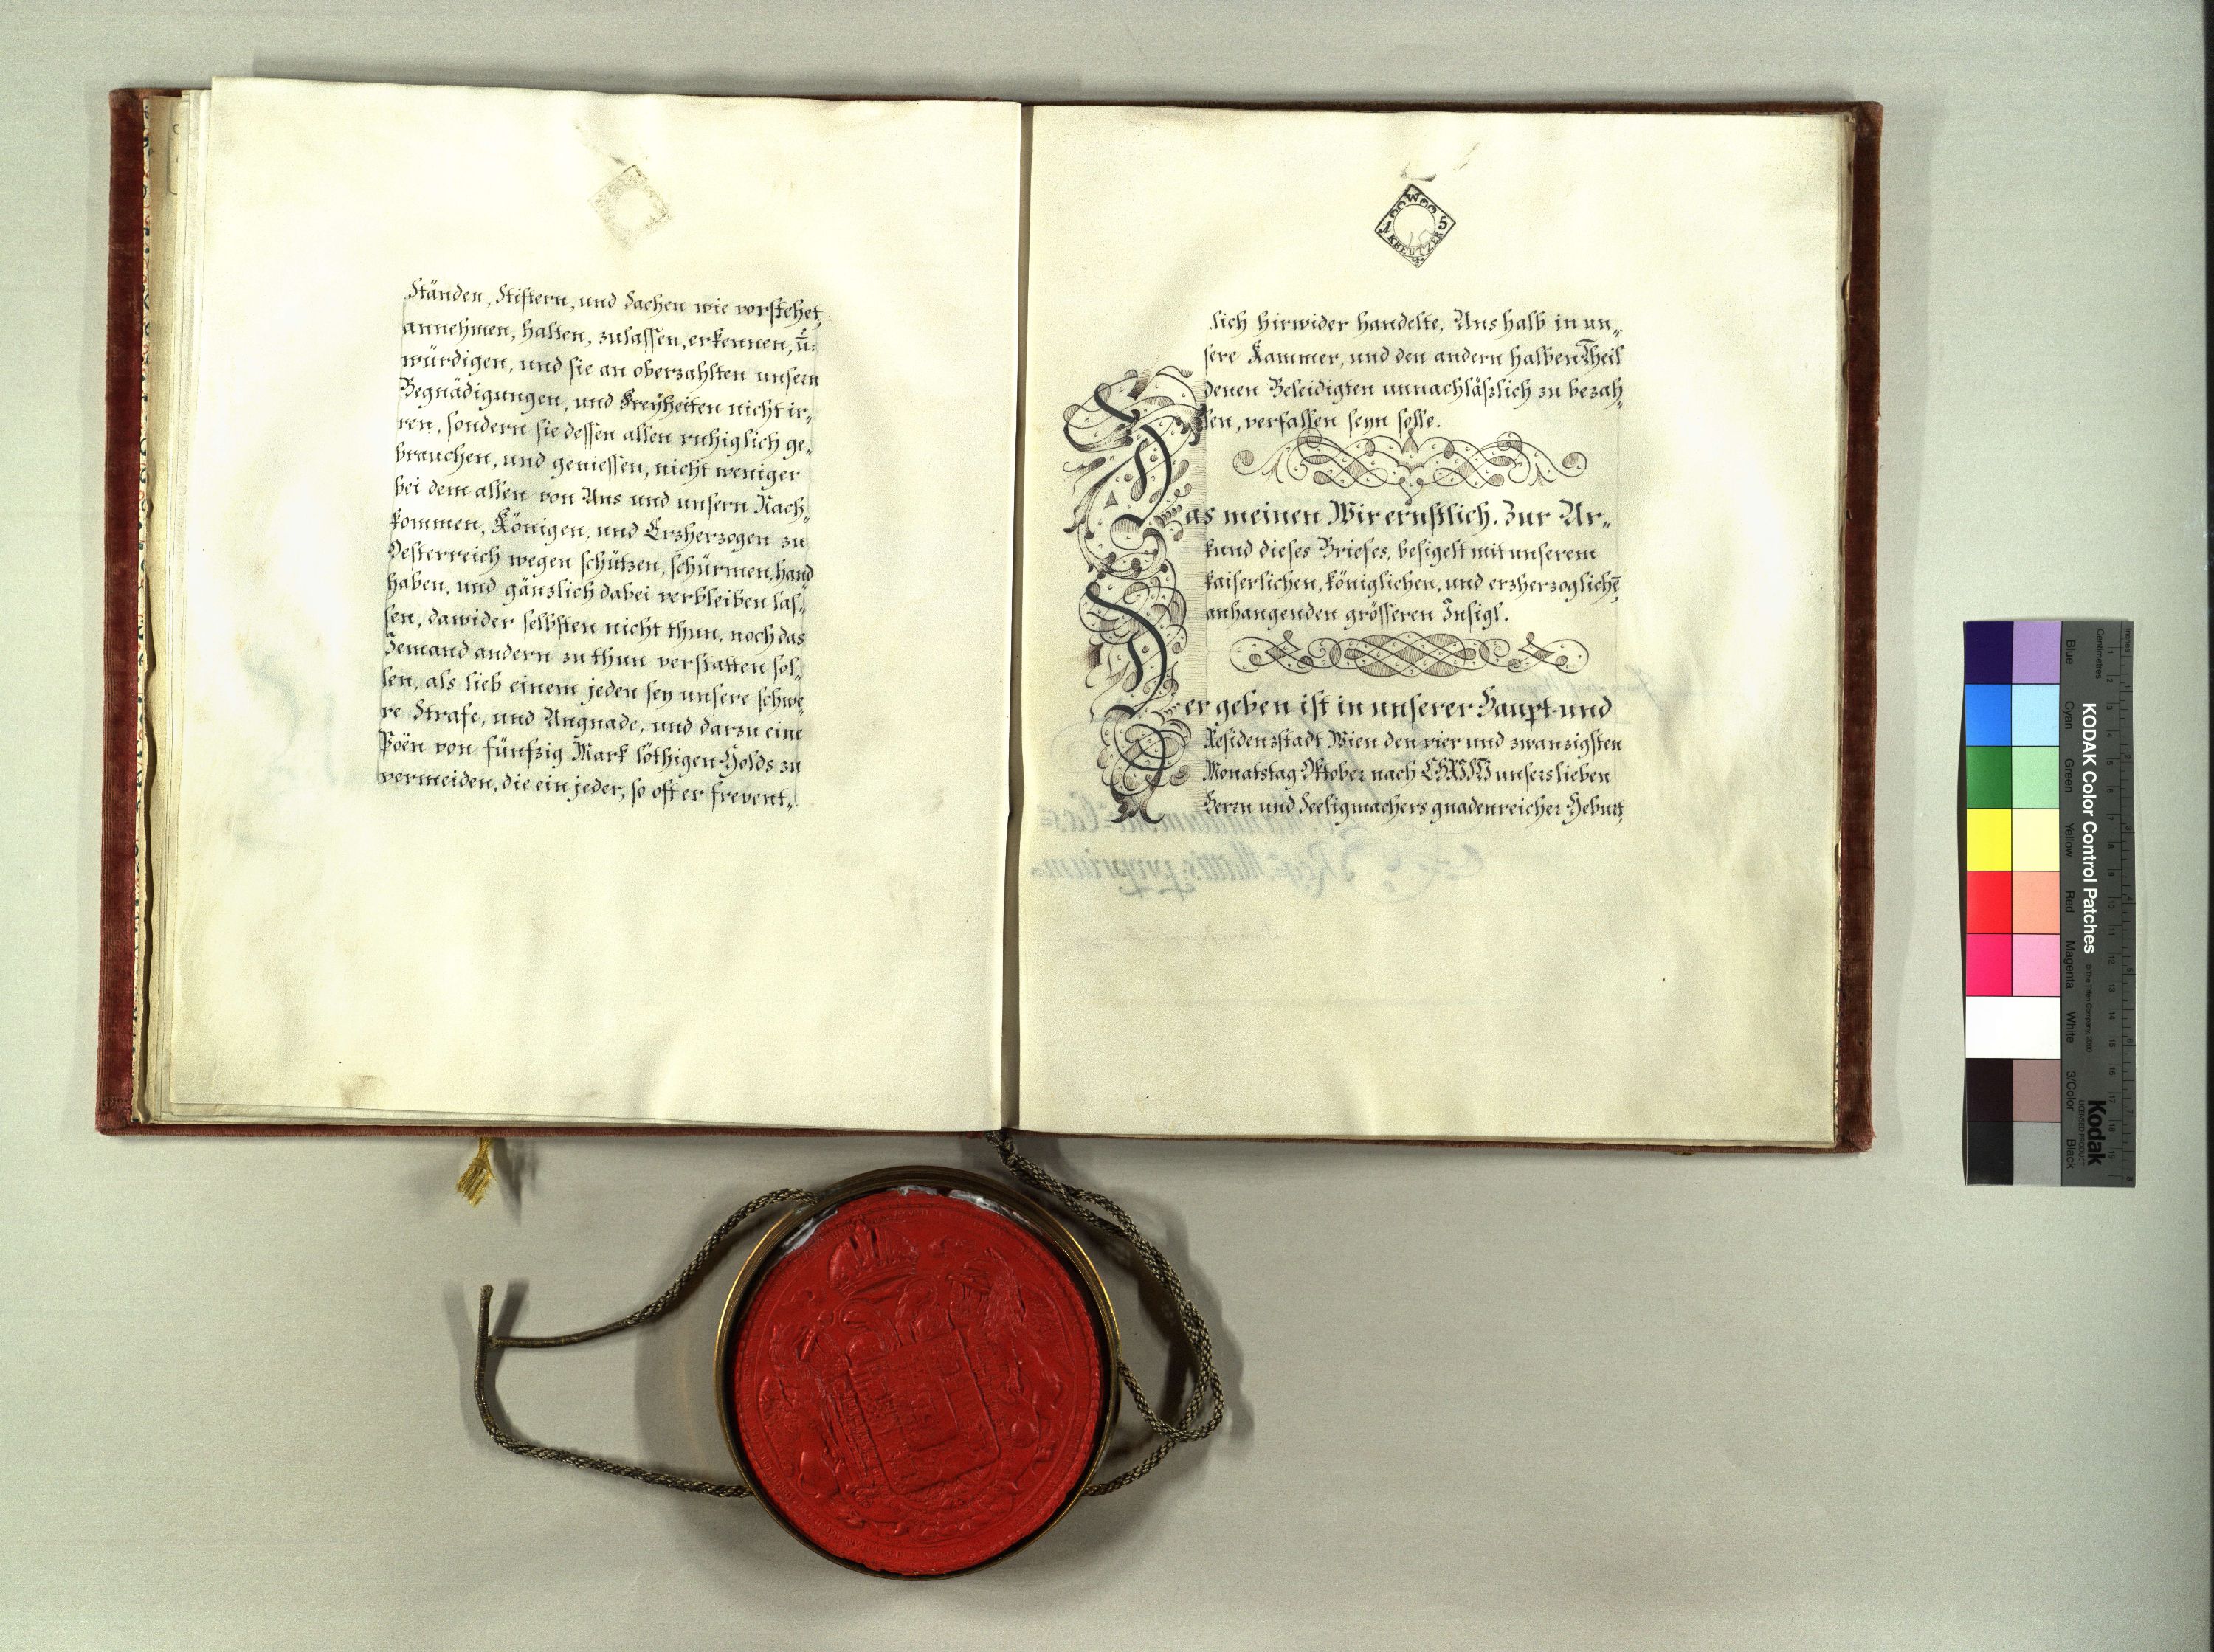 Ständen, Stiftern, und Sachen wie vorstehet,
annehmen, halten, zulassen, erkennen, ū:
würdigen, und sie an oberzahlten unsern
Begnädigungen, und Freÿheiten nicht ir„
ren, sondern sie dessen allen ruhiglich ge„
brauchen, und geniessen, nicht weniger
bei dem allen von Uns und unsern Nach„
kommen, Königen, und Erzherzogen zu
Oesterreich wegen schützen, schürmen, hand
haben, und gänzlich dabei verbleiben las„
sen, dawider selbsten nicht thun, noch das
Jemand andern zu thun verstatten sol„
len, als lieb einem jeden sey unsere schwe„
re Strafe, und Ungnade, und darzu eine
Poën von fünfzig Mark löthigen Golds zu
vermeiden, die ein jeder, so oft er frevent„
1 5
KREUTZER
lich hirwider handelte, Uns halb in un„
sere Kammer, und den andern halben Theil
denen Beleidigten unnachläßlich zu bezah„
len, verfallen seyn solle.
Das meinen Wir ernstlich. Zur Ur„
kund dieses Briefes, besigelt mit unserem
kaiserlichen, königlichen, und erzherzoglichē
anhangenden grösseren Insigl.
Der geben ist in unserer Haupt- und
Residenzstadt Wien den vier und zwanzigsten
Monatstag Oktober nach unsers lieben
Herrn und Seeligmachers gnadenreicher Geburt,
KODAK Color Control Patches
© The Tiffen Company, 2000
Kodak
LICENSED PRODUCT
Inches
Centimetres
Blue
Cyan
Green
Yellow
Red
Magenta
White
3/Color
Black